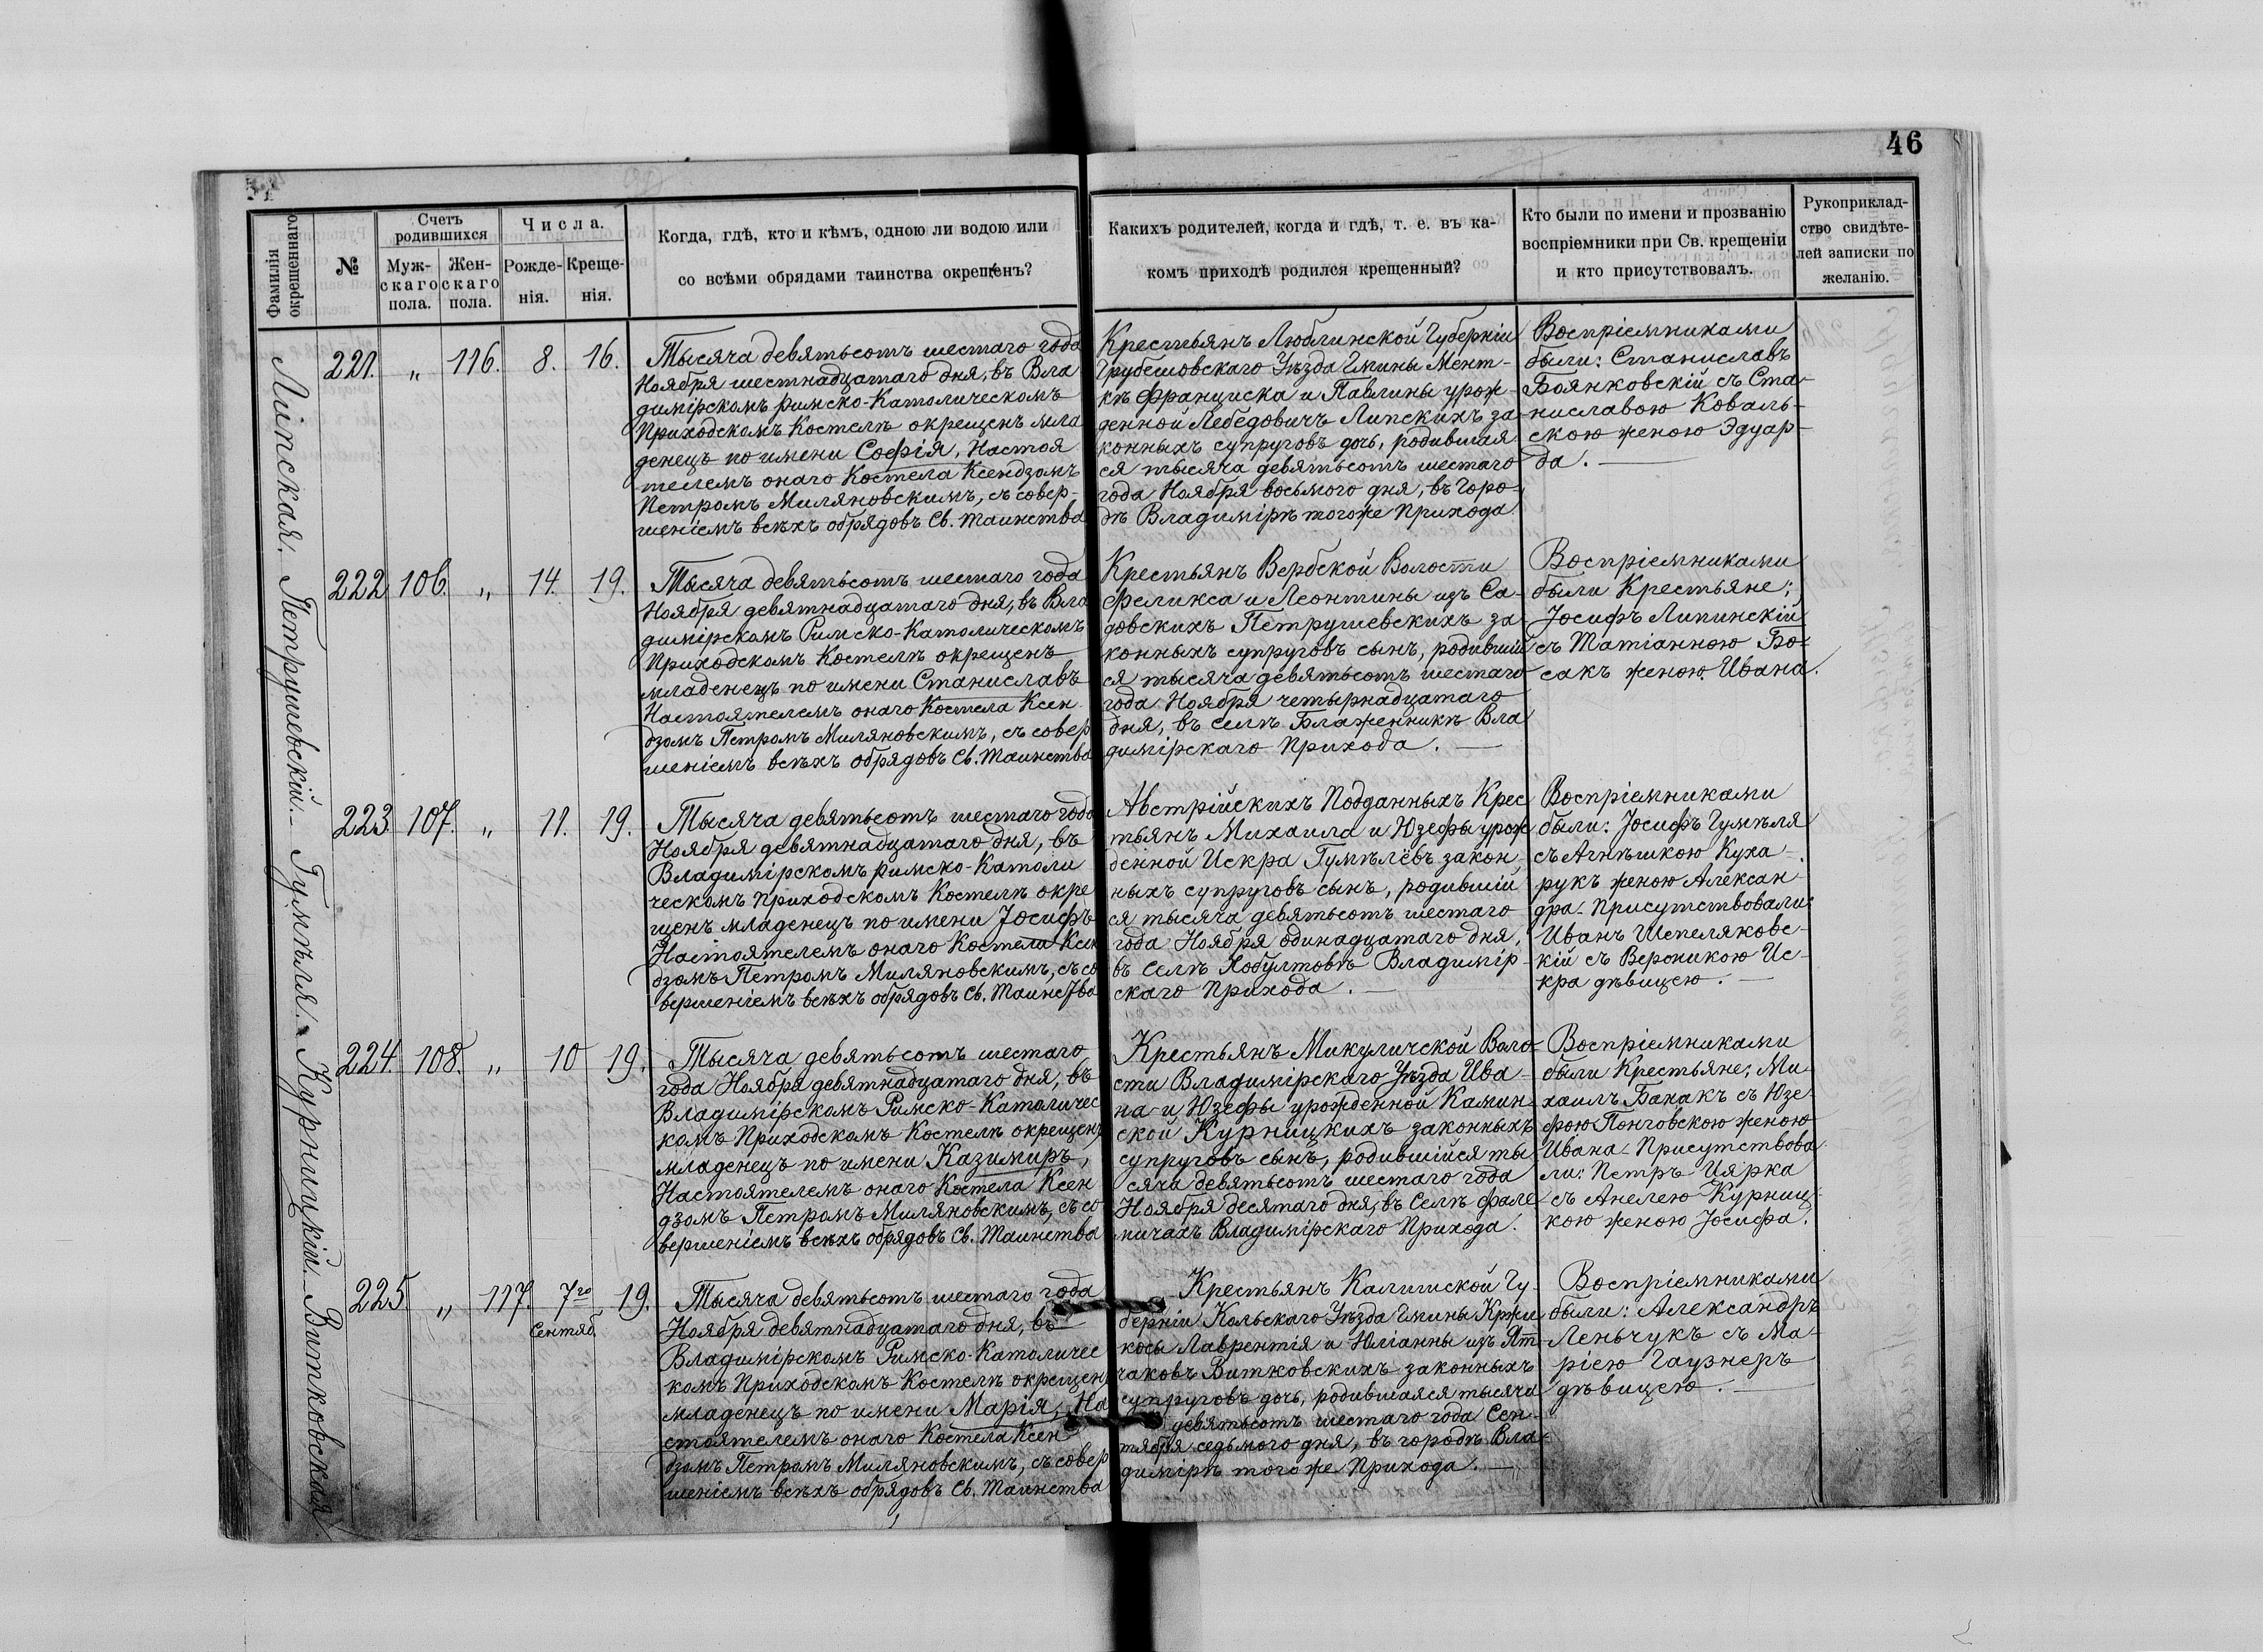 46
Фамилія окрещеннаго
№
Счетъ родившихся
Муж-
скаго
пола.
Жен-
скаго
пола.
Числа.
Рожде-
нія.
Креще-
нія.
Когда, гдѣ, кто и кѣмъ, одною ли водою или
со всѣми обрядами таинства окрещенъ?
Какихъ родителей, когда и гдѣ, т. е. въ ка-
комъ приходѣ родился крещенный?
Кто были по имени и прозванію
воспріемники при Св. крещеніи
и кто присутствовалъ.
Рукоприклад-
ство свидѣте-
лей записки по
желанію.
Липская.
221. „ 116. 8. 16.
Тысяча девятьсотъ шестаго года
Ноября шестнадцатаго дня, въ Вла
димірскомъ Римско-Католическомъ
Приходскомъ Костелѣ окрещенъ мла
денецъ по имени Софія, Настоя
телемъ онаго Костела Ксендзомъ
Петромъ Миляновскимъ, съ совер-
шеніемъ всѣхъ обрядовъ Св. Таинства
Крестьянъ Люблинской Губерніи
Грубешовскаго Уѣзда Гмины Мент-
кѣ Франциска и Павлины урож-
денной Лебедовичъ Липскихъ за
конныхъ супруговъ дочь, родившая
ся тысяча девятьсотъ шестаго
года Ноября восьмого дня, въ Горо-
дѣ Владимірѣ тогоже Прихода
Воспріемниками
были: Станиславъ
Боянковскій съ Ста-
ниславою Коваль-
скою женою Эдуар-
да.
Петрушевскій.
222. 106. „ 14. 19.
Тысяча девятьсотъ шестаго года
Ноября девятнадцатаго дня, въ Вла
димірскомъ Римско-Католическомъ
Приходскомъ Костелѣ окрещенъ
младенецъ по имени Станиславъ
Настоятелемъ онаго Костела Ксен
дзомъ Петромъ Миляновскимъ, съ совер
шеніемъ всѣхъ обрядовъ Св. Таинства
Крестьянъ Вербской Волости
Феликса и Леонтины изъ Са-
довскихъ Петрушевскихъ за-
конныхъ супруговъ сынъ, родившій
ся тысяча девятьсотъ шестаго
года Ноября четырнадцатаго
дня, въ селѣ Блаженникѣ Вла
димірскаго Прихода.
Воспріемниками
были Крестьяне;
Іосифъ Липинскій
съ Татіанною Бо-
сакъ женою Ивана.
Гумѣля.
223. 107. „ 11. 19.
Тысяча девятьсотъ шестаго года
Ноября девятнадцатаго дня, въ
Владимірскомъ Римско-Католи
ческомъ Приходскомъ Костелѣ окре
щенъ младенецъ по имени Іосифъ
Настоятелемъ онаго Костела Ксен
дзомъ Петромъ Миляновскимъ, съ со
вершеніемъ всѣхъ обрядовъ Св. Таинства
Австрійскихъ Подданныхъ Крес
тьянъ Михаила и Юзефы урож
денной Искра Гумѣлёвъ закон-
ныхъ супруговъ сынъ, родившій
ся тысяча девятьсотъ шестаго
года Ноября одинадцатаго дня,
въ селѣ Хобултовѣ Владимір-
скаго Прихода.
Воспріемниками
были: Іосифъ Гумѣля
съ Агнѣшкою Куха-
рукъ женою Алексан
дра. Присутствовали:
Иванъ Шепеляковс-
кій съ Вероникою Ис-
кра дѣвицею.
Курницкій.
224. 108. „ 10 19.
Тысяча девятьсотъ шестаго
года Ноября девятнадцатаго дня, въ
Владимірскомъ Римско-Католичес
комъ Приходскомъ Костелѣ окрещенъ
младенецъ по имени Казимиръ,
Настоятелемъ онаго Костела Ксен
дзомъ Петромъ Миляновскимъ, съ со
вершеніемъ всѣхъ обрядовъ Св. Таинства
Крестьянъ Микуличской Воло-
сти Владимірскаго Уѣзда Ива-
на и Юзефы урожденной Камин-
ской Курницкихъ законныхъ
супруговъ сынъ, родившійся ты
сяча девятьсотъ шестаго года
Ноября десятаго дня, въ Селѣ Фале
мичахъ Владимірскаго Прихода.
Воспріемниками
были Крестьяне; Ми
хаилъ Банакъ съ Юзе
фою Понговскою женою
Ивана Присутствова
ли: Петръ Цярка
съ Анелею Курниц-
кою женою Іосифа.
Витковская
225. „ 117. 7го 19.
Сентяб.
Тысяча девятьсотъ шестаго года
Ноября девятнадцатаго дня, въ
Владимірскомъ Римско-Католичес
комъ Приходскомъ Костелѣ окрещенъ
младенецъ по имени Марія, На
стоятелемъ онаго Костела Ксен
дзомъ Петромъ Миляновскимъ, съ совер
шеніемъ всѣхъ обрядовъ Св. Таинства
Крестьянъ Калишской Гу-
берніи Кольскаго Уѣзда Гмины Кржи
косы Лаврентія и Юліанны изъ Ят
чаковъ Витковскихъ законныхъ
супруговъ дочь, родившаяся тысяча
девятьсотъ шестаго года Сен-
тября седьмого дня, въ городѣ Вла-
димірѣ того же Прихода.
Воспріемниками
были: Александръ
Леньчукъ съ Ма-
ріею Гаузнеръ
дѣвицею.